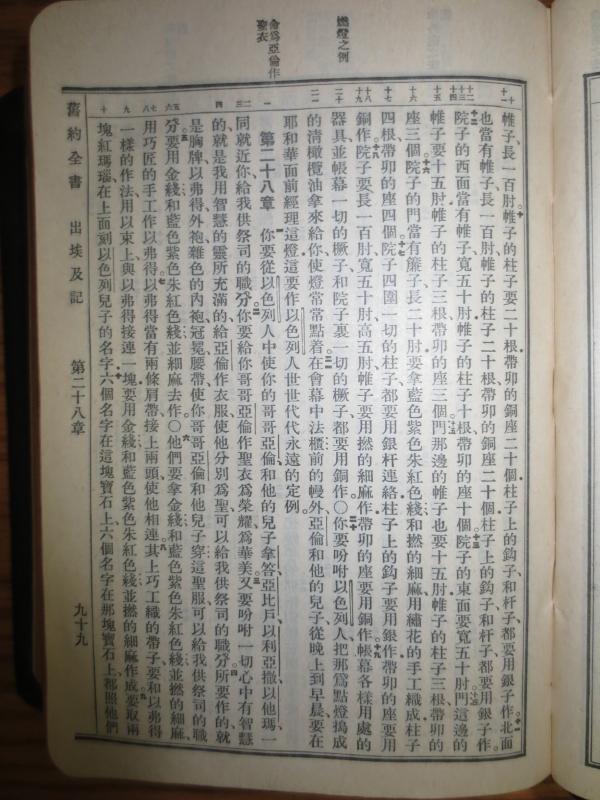 燃燈之例
命爲亞倫作
聖衣
帷子、長一百肘、帷子的柱子要二十根、帶卯的銅座二十個、柱子上的鈎子、和杆子、都要用銀子作。北面
也當有帷子、長一百肘、帷子的柱子二十根、帶卯的銅座二十個、柱子上的鈎子、和杆子、都要用銀子作。
院子的西面當有帷子、寬五十肘、帷子的柱子十根、帶卯的座十個。院子的東面要寬五十肘。門這邊的
帷子要十五肘、帷子的柱子三根、帶卯的座三個。門那邊的帷子也要十五肘、帷子的柱子三根、帶卯的
座三個。院子的門當有簾子、長二十肘、要拿藍色紫色朱紅色綫、和撚的細麻、用繡花的手工織成、柱子
四根、帶卯的座四個。院子四圍一切的柱子、都要用銀杆連絡、柱子上的鈎子要用銀作、帶卯的座要用
銅作。院子要長一百肘、寬五十肘、高五肘、帷子要用撚的細麻作、帶卯的座要用銅作。帳幕各樣用處的
器具、並帳幕一切的橛子、和院子裏一切的橛子、都要用銅作。○你要吩咐以色列人、把那爲點燈搗成
的清橄欖油拿來給你、使燈常常點着。在會幕中法櫃前的幔外、亞倫和他的兒子、從晚上到早晨、要在
耶和華面前經理這燈、這要作以色列人世世代代永遠的定例。
第二十八章 你要從以色列人中、使你的哥哥亞倫、和他的兒子拿答、亞比戶、以利亞撒、以他瑪、一
同就近你、給我供祭司的職分。你要給你哥哥亞倫作聖衣爲榮耀、爲華美。又要吩咐一切心中有智慧
的、就是我用智慧的靈所充滿的、給亞倫作衣服、使他分別爲聖、可以給我供祭司的職分。所要作的、就
是胸牌、以弗得、外袍、雜色的內袍、冠冕、腰帶、使你哥哥亞倫和他兒子穿這聖服、可以給我供祭司的職
分。要用金綫、和藍色紫色朱紅色綫、並細麻去作。○他們要拿金綫、和藍色紫色朱紅色綫、並撚的細麻、
用巧匠的手工作以弗得。以弗得當有兩條肩帶、接上兩頭、使他相連。其上巧工織的帶子、要和以弗得
一樣的作法、用以束上、與以弗得接連一塊、要用金綫、和藍色紫色朱紅色綫、並撚的細麻作成。要取兩
塊紅瑪瑙、在上面刻以色列兒子的名字。六個名字在這塊寶石上、六個名字在那塊寶石上、都照他們
舊約全書 出埃及記 第二十八章 九十九